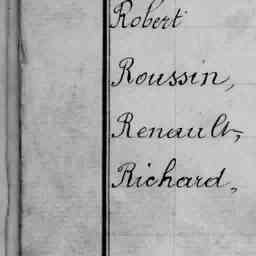 Robert
Roussin,
Renault,
Richard,